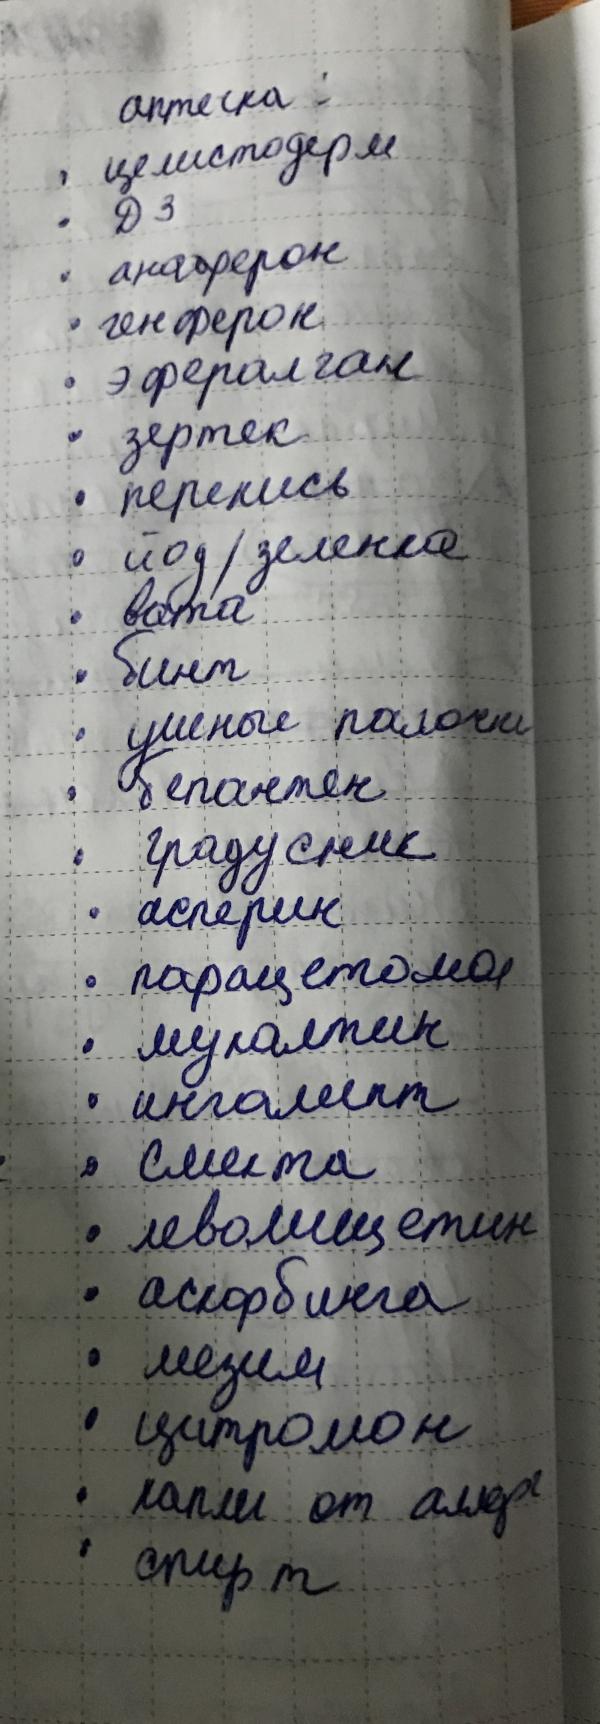 аптечка :
• целистодерм
• Д3
• анаферон
• генферон
• эфералган
• зертек
• перекись
• йод/зеленка
• вата
• бинт
• ушные палочки
• бепантен
• градусник
• асперин
• парацетомол
• мукалтин
• ингалипт
• смекта
• леволищетин
• аскорбинга
• мезим
• цитромон
• капли от аллерг
• спирт